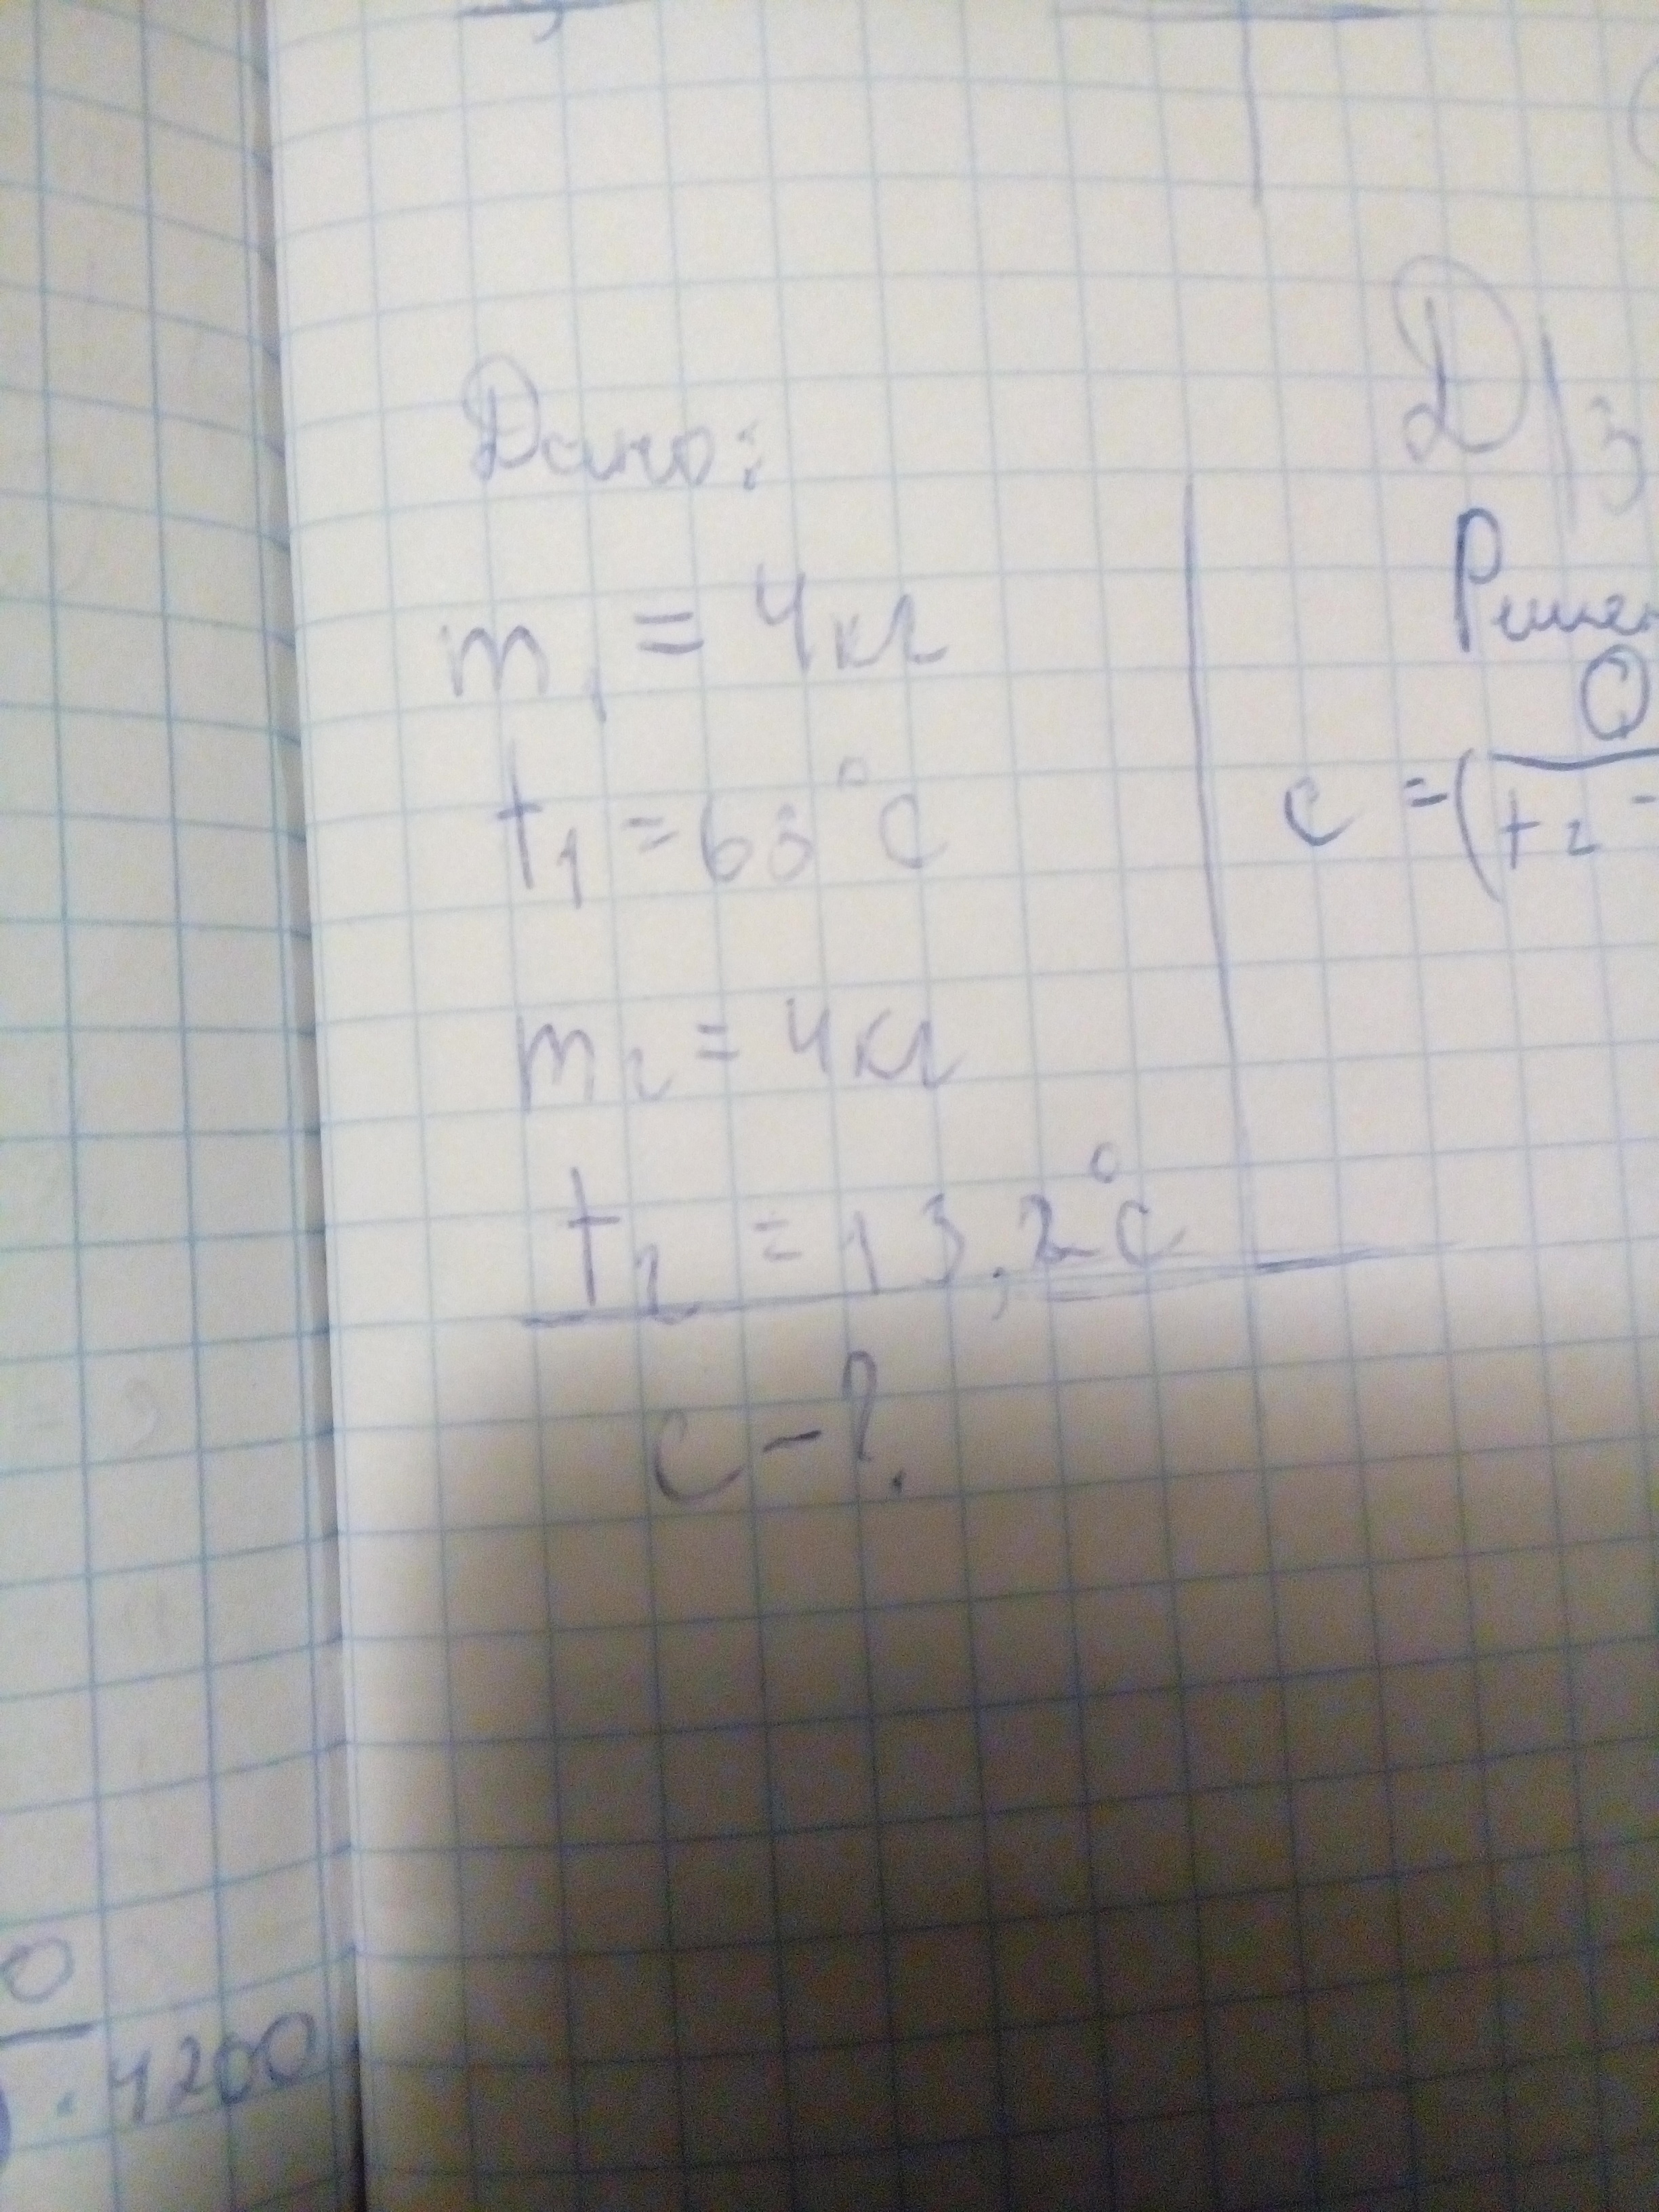 Дано:
m₁ = 4 кг
t₁ = 63 °C
m₂ = 4 кг
t₂ = 13,2 °C
c - ?
Д/з
Решен
Q
c = (t₂ -
0
· 4200